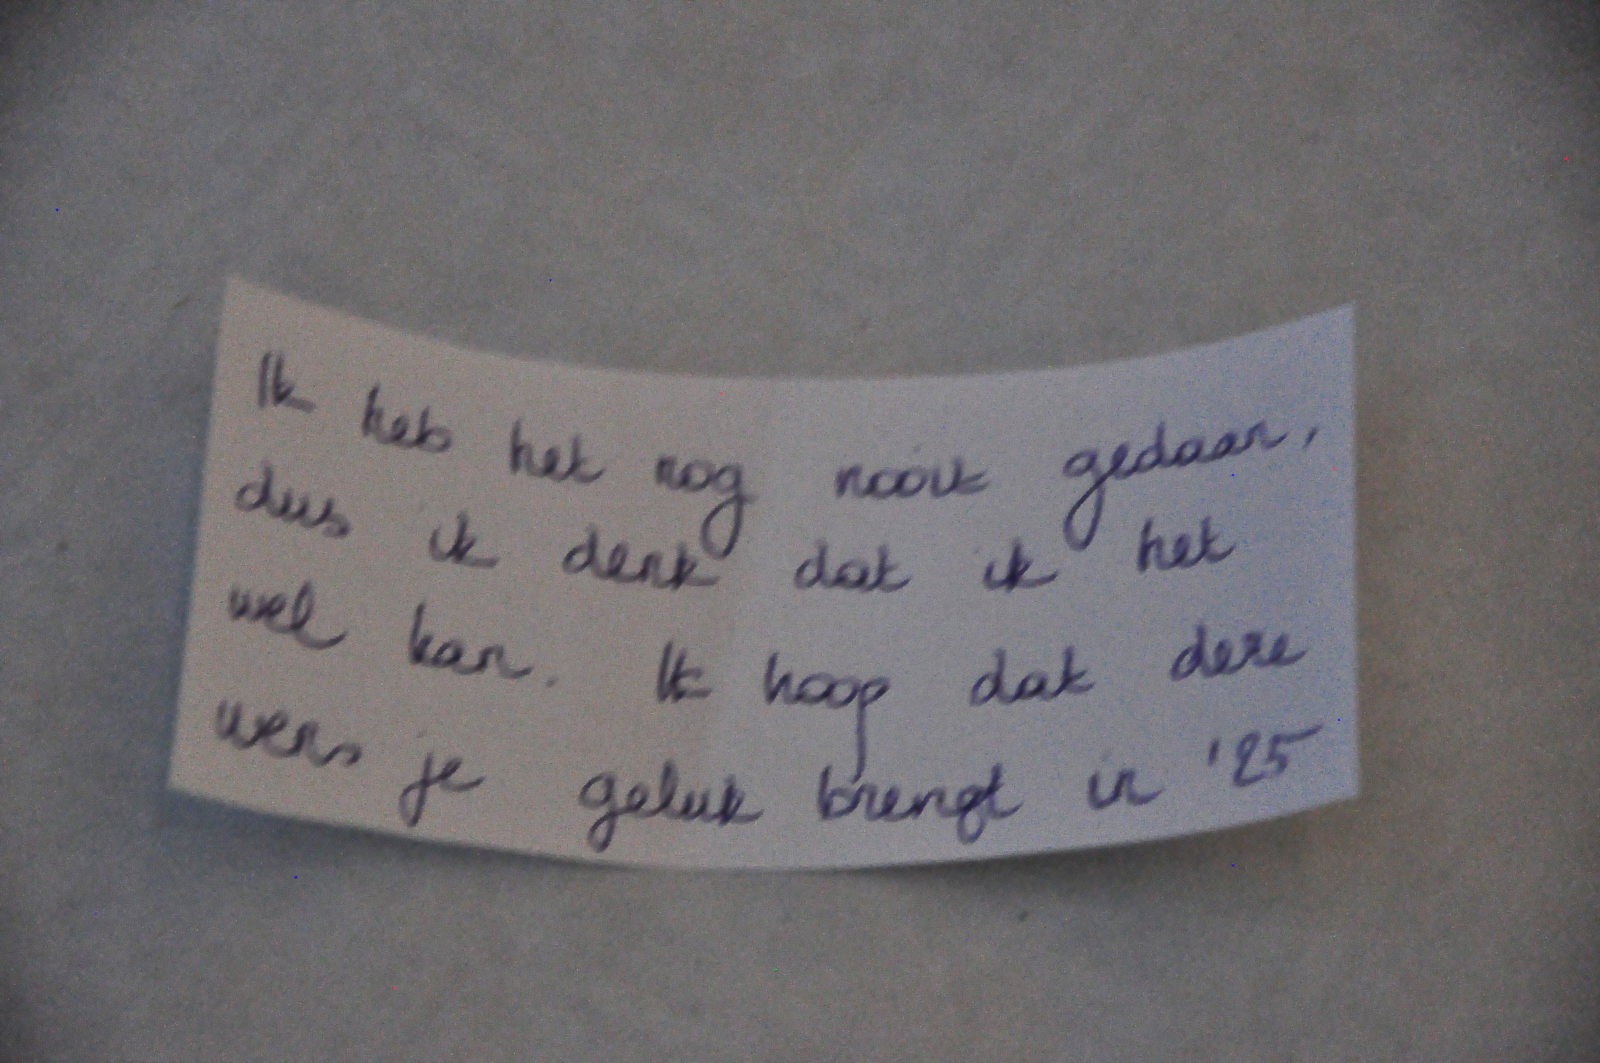 Ik heb het nog nooit gedaan,
dus ik denk dat ik het
wel kan. Ik hoop dat deze
wens je geluk brengt in '25